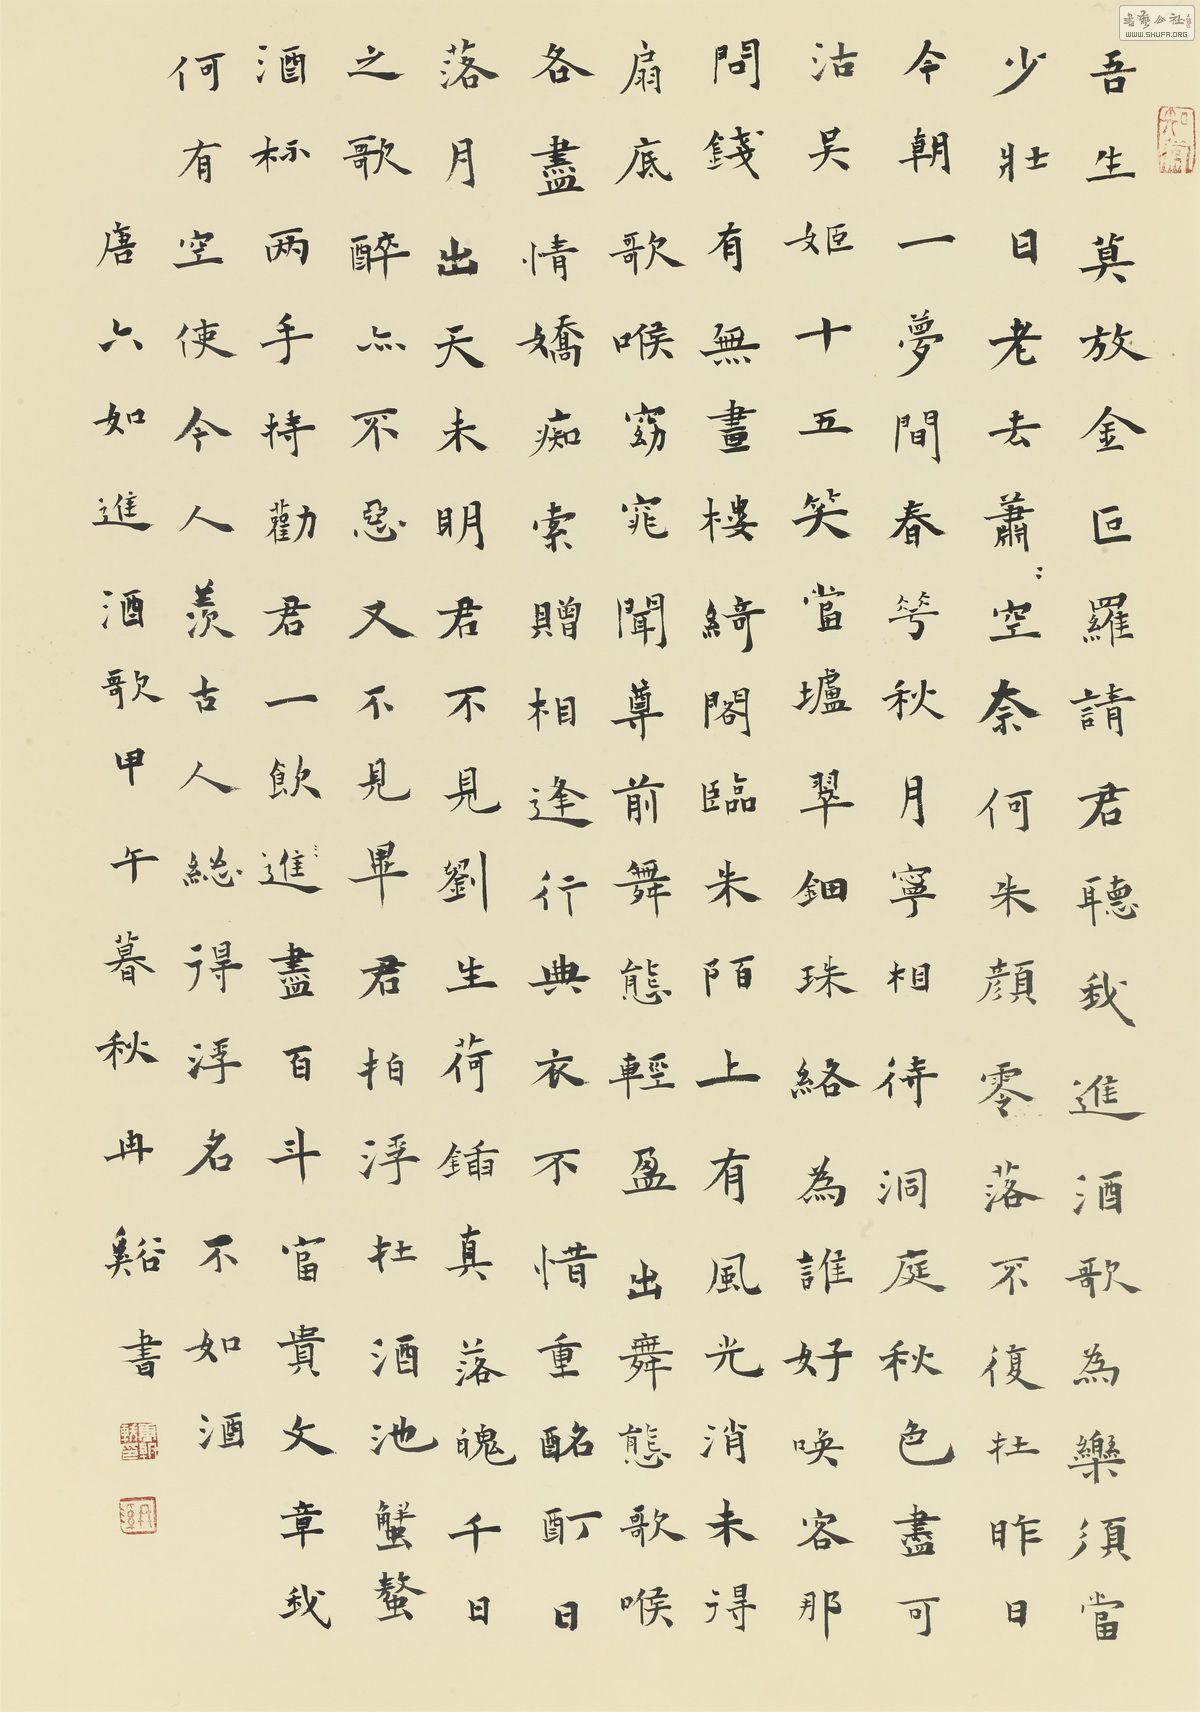 吾生莫放金叵羅請君聽我進酒歌為樂須當
少壯日老去蕭〻空奈何朱顏零落不復在昨日
今朝一夢間春華秋月寧相待洞庭秋色盡可
沽吳姬十五笑當壚翠鈿珠絡為誰好喚客那
問錢有無畫樓綺閣臨朱陌上有風光消未得
扇底歌喉窈窕聞尊前舞態輕盈出舞態歌喉
各盡情嬌痴索贈相逢行典衣不惜重酩酊日
落月出天未明君不見劉生荷鍤真落魄千日
之歌醉亦不惡又不見畢君拍浮在酒池蟹螯
酒杯两手持勸君一飲進盡百斗富貴文章我
何有空使今人羨古人總得浮名不如酒
唐六如進酒歌甲午暮秋冉谿書
書藝公社
WWW.SHUFA.ORG